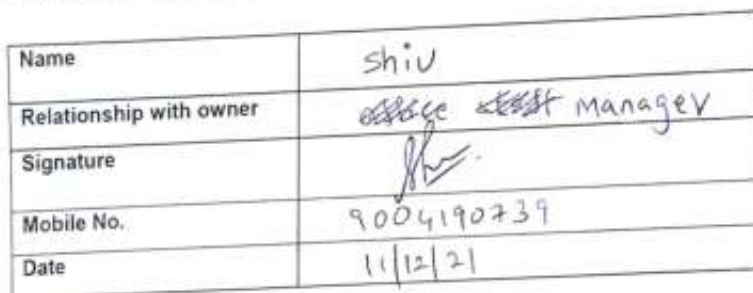 Name shiv
Relationship with owner Manager
Signature
Mobile No. 9004190739
Date 11/12/21